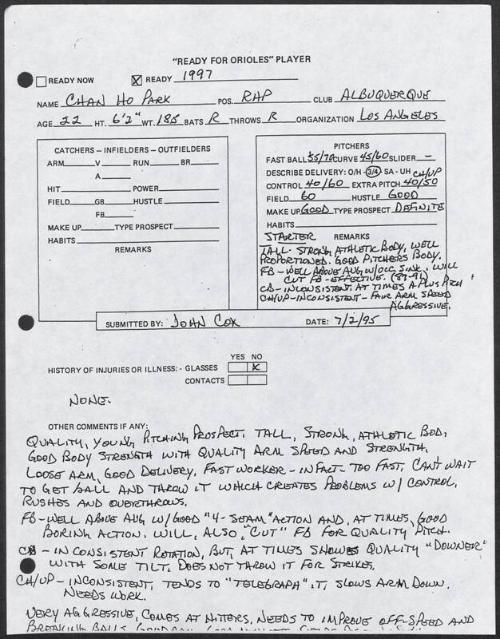 "READY FOR ORIOLES" PLAYER
READY NOW READY 1997
NAME CHAN HO PARK POS. RHP CLUB ALBUQUERQUE
AGE 22 HT. 6'2" WT. 185 BATS R THROWS R ORGANIZATION LOS ANGELES
CATCHERS - INFIELDERS - OUTFIELDERS
ARM V RUN BR
A
HIT POWER
FIELD GB HUSTLE
FB
MAKE UP TYPE PROSPECT
HABITS
REMARKS
PITCHERS
FAST BALL 55/70 CURVE 45/60 SLIDER –
DESCRIBE DELIVERY: O/H - 3/4 SA - UH CH/UP
CONTROL 40/60 EXTRA PITCH 40/50
FIELD 60 HUSTLE GOOD
MAKE UP GOOD TYPE PROSPECT DEFINITE
HABITS
STARTER REMARKS
TALL - STRONG ATHLETIC BODY, WELL
PROPORTIONED. GOOD PITCHERS BODY.
FB - WELL ABOVE AVG W/OCC SINK. WILL
CUT FB - EFFECTIVE.
CB - INCONSISTENT. AT TIMES A PLUS PITCH
CH/UP - INCONSISTENT - FAIR ARM SPEED
AGGRESSIVE.
SUBMITTED BY: JOHN COX DATE: 7/2/95
YES NO
HISTORY OF INJURIES OR ILLNESS: - GLASSES X
CONTACTS
NONE.
OTHER COMMENTS IF ANY:
QUALITY, YOUNG PITCHING PROSPECT. TALL, STRONG, ATHLETIC BOD,
GOOD BODY STRENGTH WITH QUALITY ARM SPEED AND STRENGTH.
LOOSE ARM, GOOD DELIVERY. FAST WORKER - IN FACT - TOO FAST. CAN'T WAIT
TO GET BALL AND THROW IT WHICH CREATES PROBLEMS W/ CONTROL,
RUSHES AND OVERTHROWS.
FB - WELL ABOVE AVG W/ GOOD "4 - SEAM" ACTION AND, AT TIMES, GOOD
BORING ACTION. WILL, ALSO, "CUT" FB FOR QUALITY PITCH.
CB - INCONSISTENT ROTATION, BUT, AT TIMES SHOWS QUALITY "DOWNER"
WITH SOME TILT. DOES NOT THROW IT FOR STRIKES.
CH/UP - INCONSISTENT, TENDS TO "TELEGRAPH" IT, SLOWS ARM DOWN.
NEEDS WORK.
VERY AGGRESSIVE, COMES AT HITTERS, NEEDS TO IMPROVE OFF-SPEED AND
BREAKING BALLS